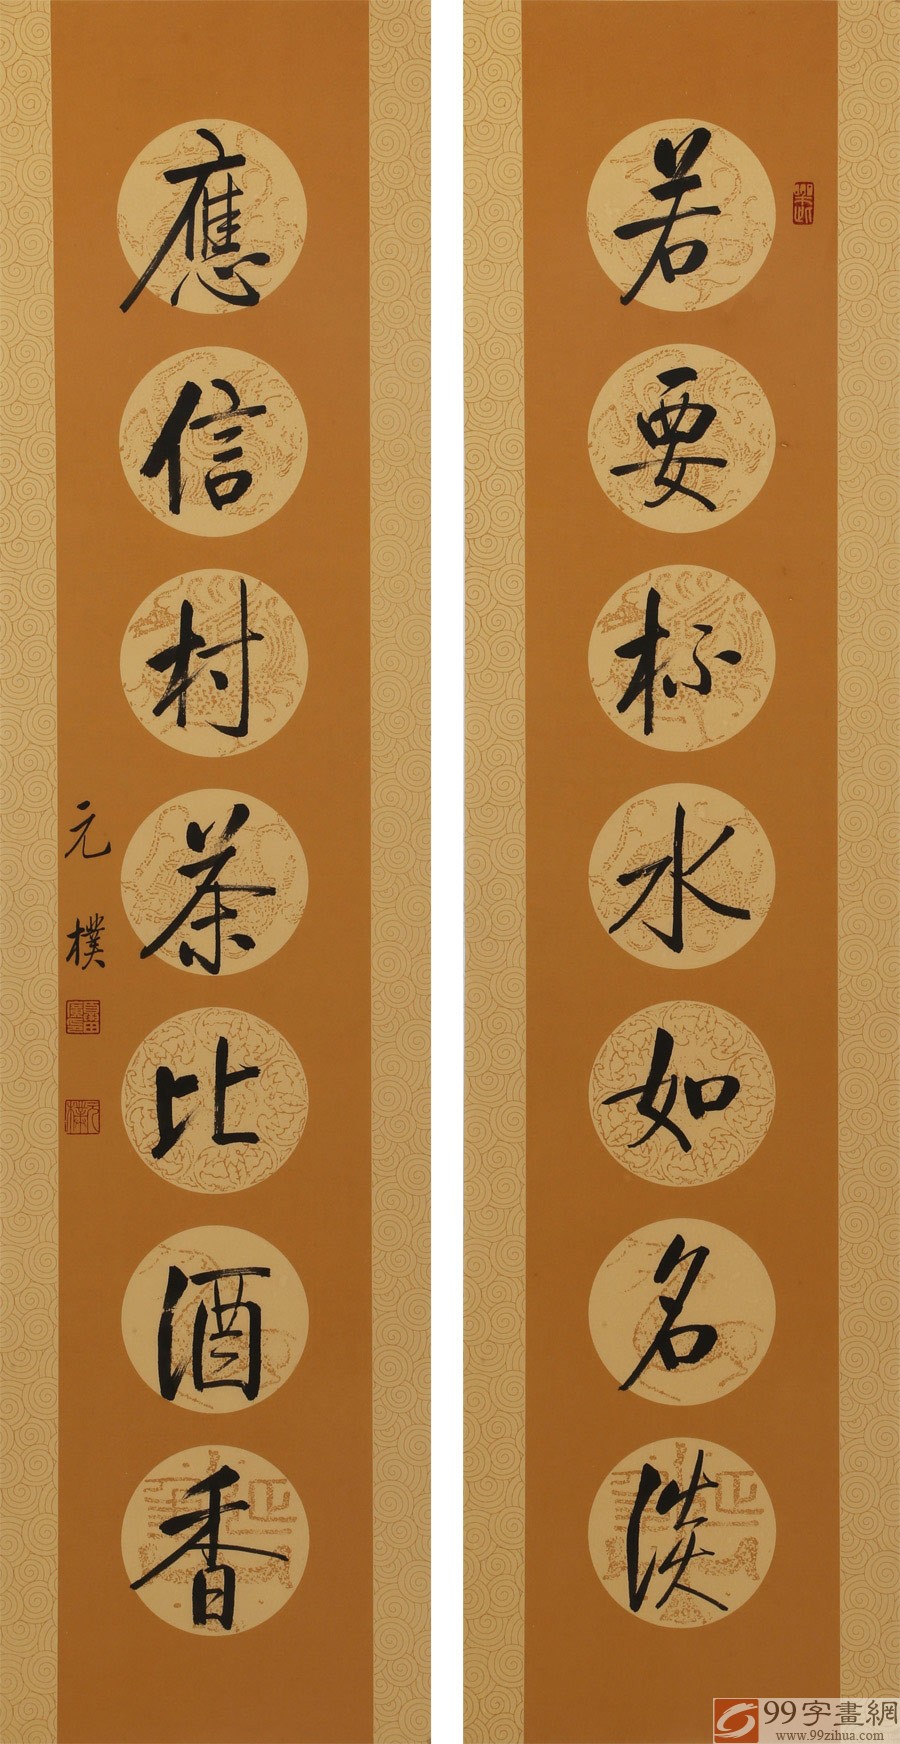 若要杯水如名淡
應信村茶比酒香
元樸
99字畫網
www.99zihua.com